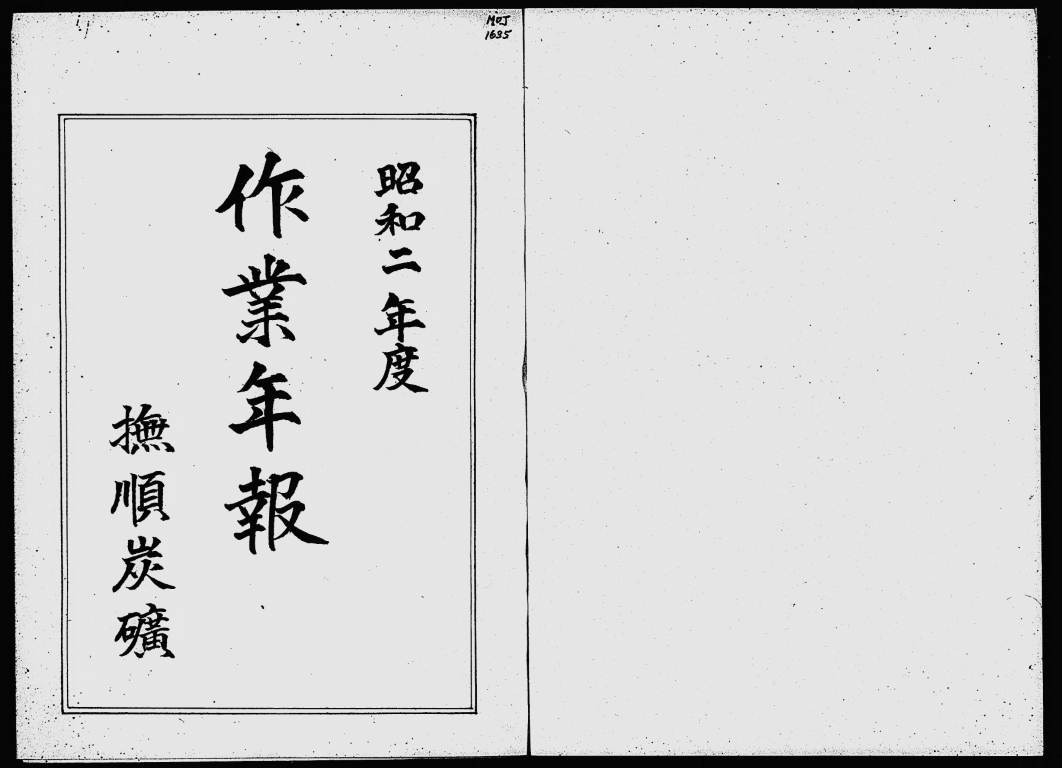 MOJ
1635
昭和二年度
作業年報
撫順炭礦